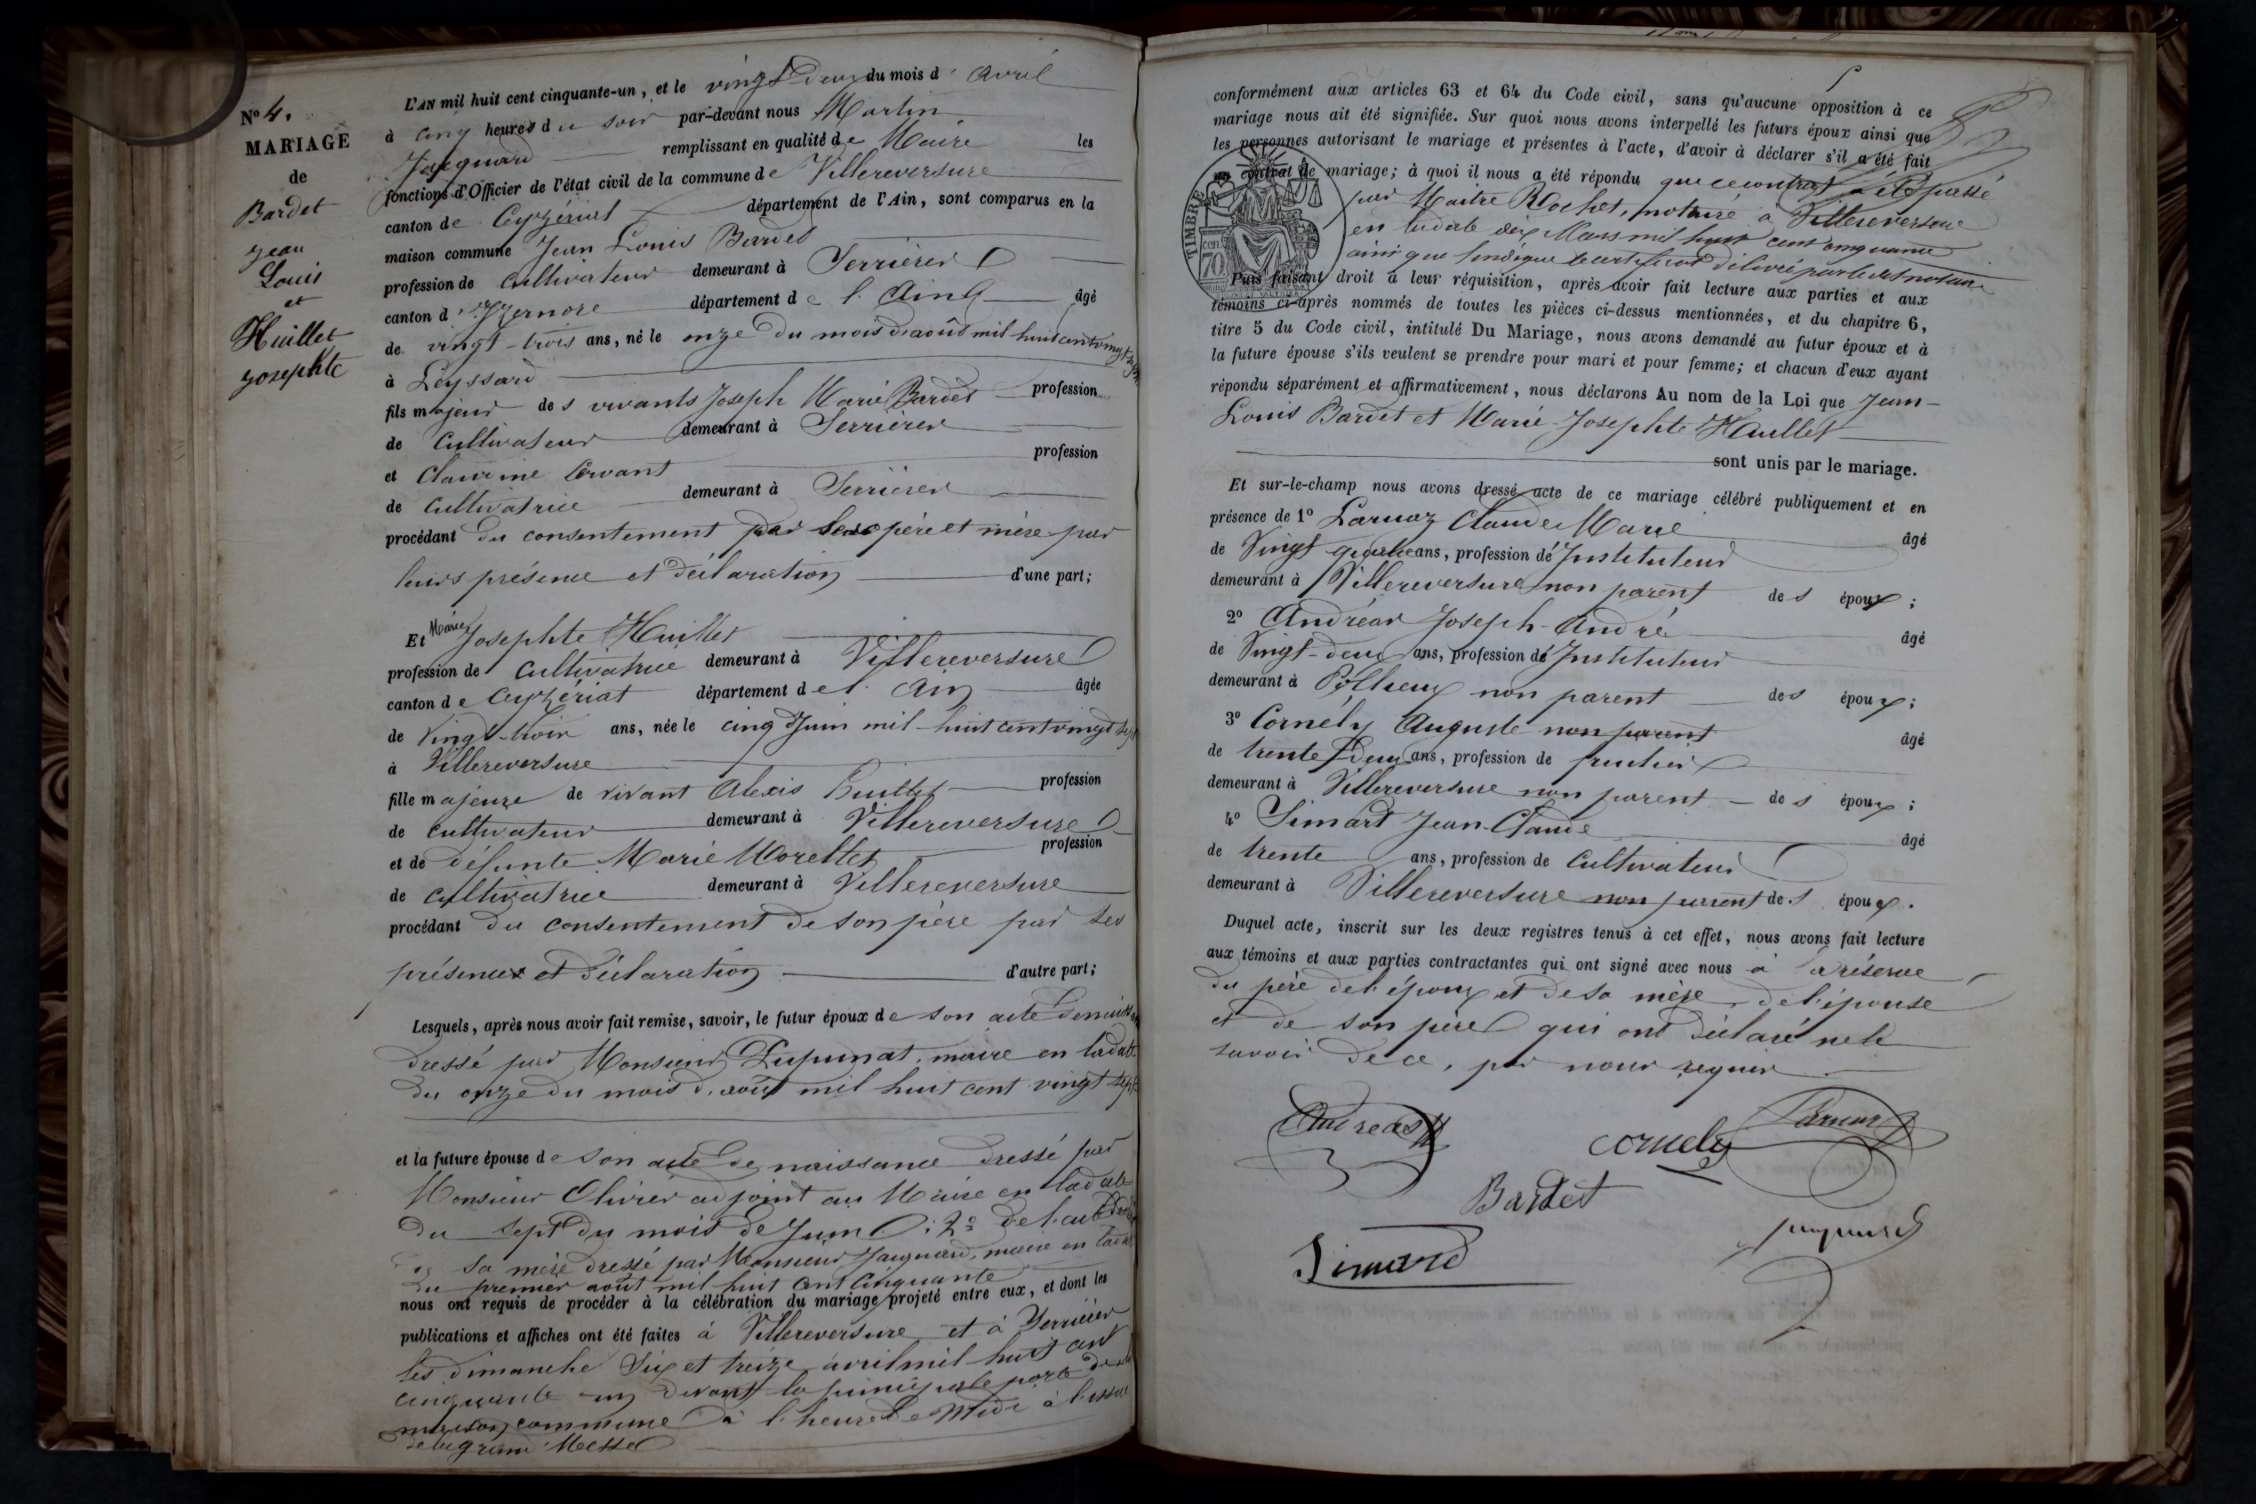 N° 4.
MARIAGE
de
Bardet
Jean
Louis
et
Huillet
Josephte
L'AN mil huit cent cinquante-un, et le vingt deux du mois d'Avril
à cinq heures du soir par-devant nous Martin
Jacquard remplissant en qualité de Maire les
fonctions d'Officier de l'état civil de la commune de Villereversure
canton de Ceyzériat département de l'Ain, sont comparus en la
maison commune Jean Louis Bardet
profession de Cultivateur demeurant à Serrières
canton d'Izernore département de l'Ain âgé
de vingt-trois ans, né le onze du mois d'août mil-huit cent vingt sept
à Leyssard
fils majeur des vivants Joseph Marie Bardet profession
de Cultivateur demeurant à Serrières
et Claudine Cervant profession
de Cultivatrice demeurant à Serrières
procédant du consentement par ses père et mère par
leurs présence et déclaration d'une part;
Et Marie Josephte Huillet
profession de Cultivatrice demeurant à Villereversure
canton de Ceyzériat département de l'Ain âgée
de vingt-trois ans, née le cinq Juin mil-huit cent vingt sept
à Villereversure
fille majeure de vivant Alexis Huillet profession
de cultivateur demeurant à Villereversure
et de défunte Marie Morellet profession
de cultivatrice demeurant à Villereversure
procédant du consentement de son père par ses
présence et déclaration d'autre part;
Lesquels, après nous avoir fait remise, savoir, le futur époux de son acte de naissance
dressé par Monsieur Dupunat, maire en la date
du onze du mois d'août mil huit cent vingt sept
et la future épouse de son acte de naissance dressé par
Monsieur Olivier adjoint au Maire en la date
du sept du mois de Juin; 2° de l'acte de décès
de sa mère dressé par Monsieur Jacquard, maire en la date
du premier août mil huit cent cinquante
nous ont requis de procéder à la célébration du mariage projeté entre eux, et dont les
publications et affiches ont été faites à Villereversure et à Serrières
les dimanche six et treize avril mil huit cent
cinquante-un devant la principale porte de la
maison commune à l'heure de Midi à l'issue
de la grand Messe
conformément aux articles 63 et 64 du Code civil, sans qu'aucune opposition à ce
mariage nous ait été signifiée. Sur quoi nous avons interpellé les futurs époux ainsi que
les personnes autorisant le mariage et présentes à l'acte, d'avoir à déclarer s'il a été fait
un contrat de mariage; à quoi il nous a été répondu que ce contrat a été passé
par Maitre Rochet, notaire à Villereversure
en la date dix Mars mil huit cent cinquante
ainsi que l'indique le certificat délivré par le dit notaire
TIMBRE
70
Puis faisant droit à leur réquisition, après avoir fait lecture aux parties et aux
témoins ci-après nommés de toutes les pièces ci-dessus mentionnées, et du chapitre 6,
titre 5 du Code civil, intitulé Du Mariage, nous avons demandé au futur époux et à
la future épouse s'ils veulent se prendre pour mari et pour femme; et chacun d'eux ayant
répondu séparément et affirmativement, nous déclarons Au nom de la Loi que Jean-
Louis Bardet et Marie Josephte Huillet
sont unis par le mariage.
Et sur-le-champ nous avons dressé acte de ce mariage célébré publiquement et en
présence de 1° Larnaz Claude Marie âgé
de Vingt quatre ans, profession d'Instituteur
demeurant à Villereversure non parent des époux;
2° Andréas Joseph-André âgé
de Vingt-deux ans, profession d'Instituteur
demeurant à Pollieux non parent des époux;
3° Cornély Auguste non parent âgé
de trente deux ans, profession de fruitier
demeurant à Villereversure non parent des époux;
4° Simard Jean-Claude âgé
de trente ans, profession de Cultivateur
demeurant à Villereversure non parent des époux.
Duquel acte, inscrit sur les deux registres tenus à cet effet, nous avons fait lecture
aux témoins et aux parties contractantes qui ont signé avec nous à la réserve
du père de l'époux et de sa mère, de l'épouse
et de son père qui ont déclaré ne le
savoir de ce, par nous requis
Andréas
Cornely
Larnaz
Bardet
Jacquard
Simard